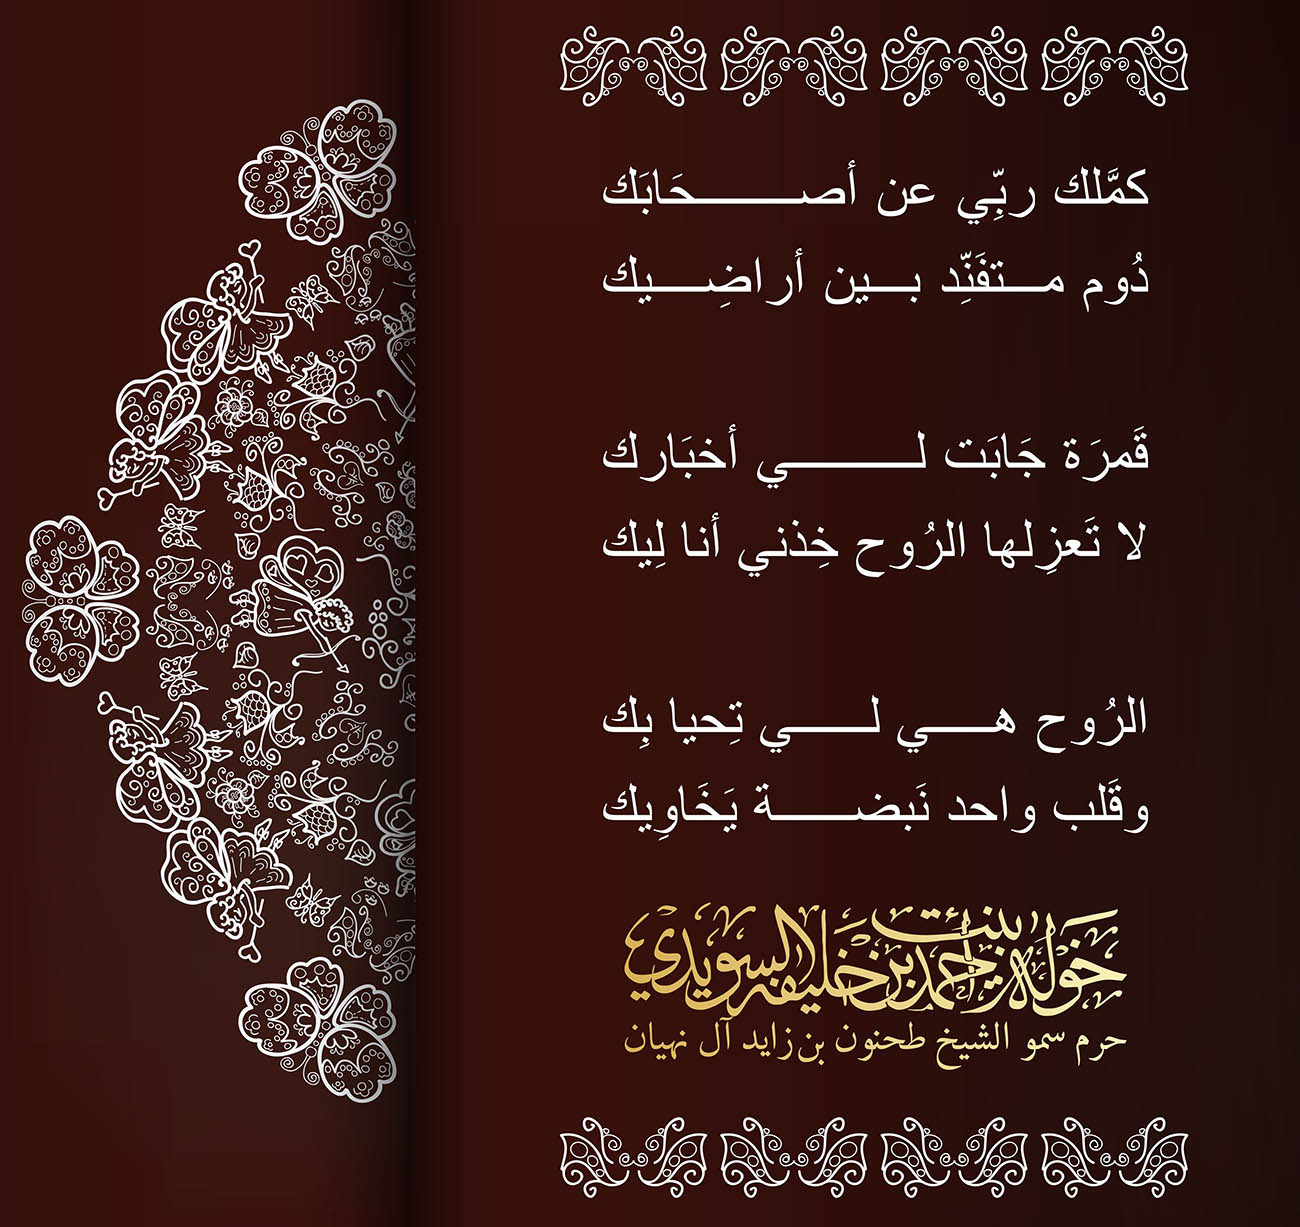 كمَّلك ربِّي عن أصـــــــحَابَك
دُوم مـتفَنِّد بـين أراضِـيك
قَمرَة جَابَت لـــــــي أخبَارك
لا تَعزِلها الرُوح خِذني أنا لِيك
الرُوح هـــي لـــــي تِحيا بِك
وقَلب واحد نَبضـــــة يَخَاوِيك
خوله بنت احمد بن خليفه السويدي
حرم سمو الشيخ طحنون بن زايد آل نهيان